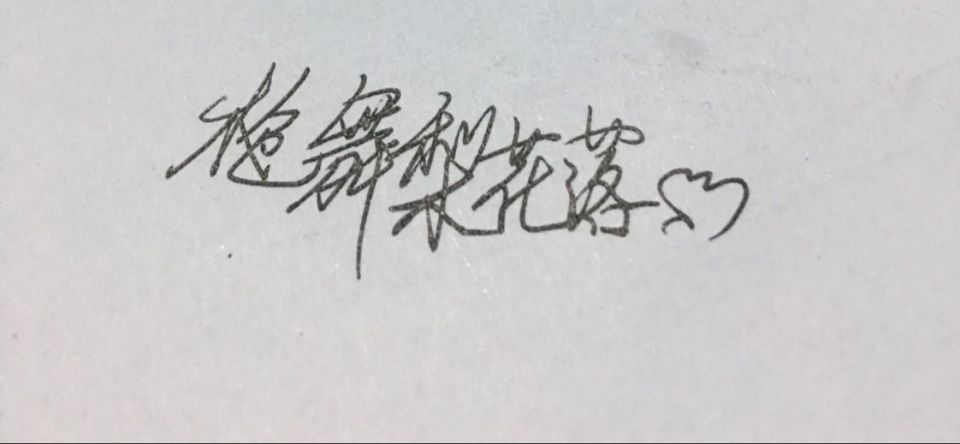 枪舞梨花落